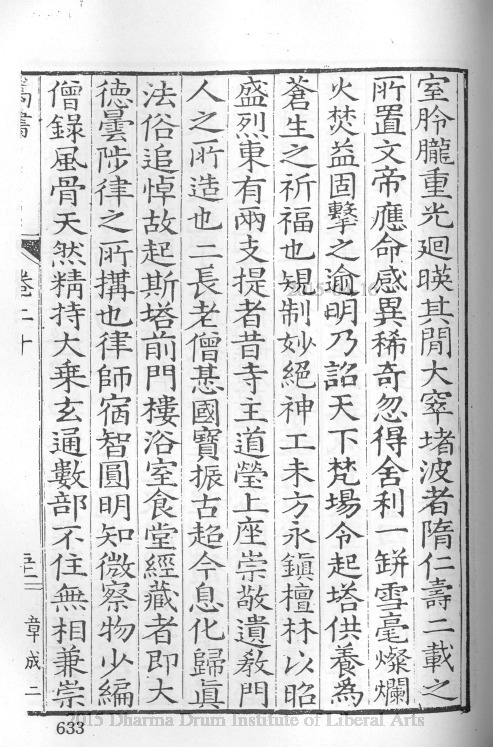 室肹朧重光迴暎其閒大窣堵波者隋仁壽二載之
所置文帝應命感異稀奇忽得舍利一缾雪毫燦爛
火焚益固擊之逾明乃詔天下梵場令起塔供養爲
蒼生之祈福也規制妙絕神工未方永鎭檀林以昭
盛烈東有兩支提者昔寺主道瑩上座崇敬遺教門
人之所造也二長老僧惎國寶振古超今息化歸眞
法俗追悼故起斯塔前門樓浴室食堂經藏者即大
德曇陟律之所搆也律師宿智圓明知微察物少編
僧錄風骨天然精持大乗玄通數部不住無相兼崇
卷二十
章成二
633
2015 Dharma Drum Institute of Liberal Arts